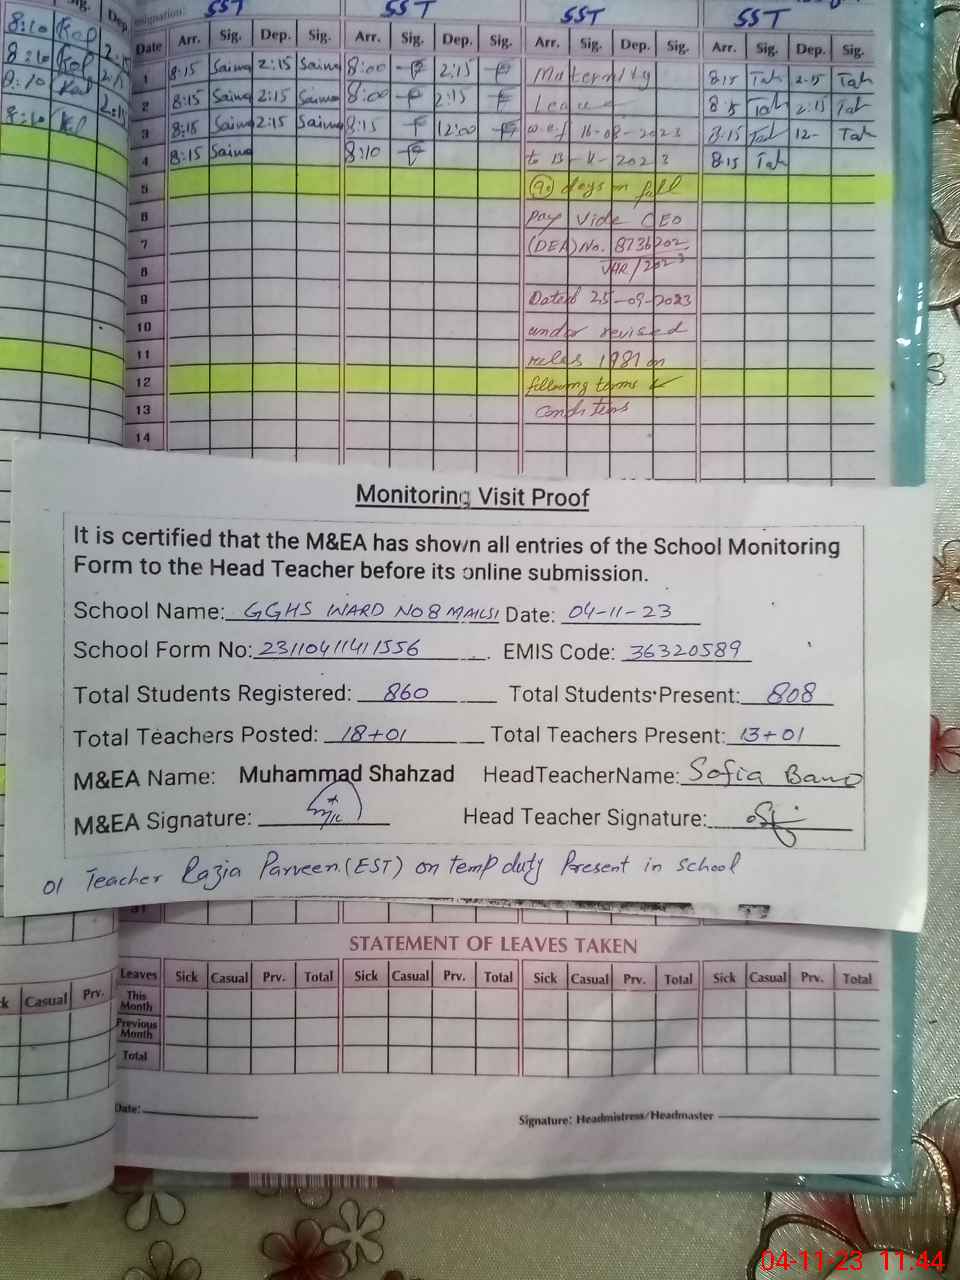 SST SST SST SST
Date Arr. Sig. Dep. Sig. Arr. Sig. Dep. Sig. Arr. Sig. Dep. Sig. Arr. Sig. Dep. Sig.
1 8:15 Saima 2:15 Saima 8:00 2:15 Maternity 8:15 Tah 2:15 Tah
2 8:15 Saima 2:15 Saima 8:00 2:15 Leave 8:15 Tah 2:15 Tah
3 8:15 Saima 2:15 Saima 8:15 12:00 w.e.f 16-08-2023 8:15 Tah 12- Tah
4 8:15 Saima 8:10 to 13-11-2023 8:15 Tah
5 90 days on full
6 pay vide CEO
7 (DEA) No. 8736202
8 VHR/2023
9 Dated 25-09-2023
10 under revised
11 rules 1981 on
12 following terms &
13 conditions
14
Monitoring Visit Proof
It is certified that the M&EA has shown all entries of the School Monitoring
Form to the Head Teacher before its online submission.
School Name: GGHS WARD NO 8 MAILSI Date: 04-11-23
School Form No: 23110411411556 EMIS Code: 36320589
Total Students Registered: 860 Total Students Present: 808
Total Teachers Posted: 18+01 Total Teachers Present: 13+01
M&EA Name: Muhammad Shahzad HeadTeacherName: Sofia Bano
M&EA Signature: Head Teacher Signature:
01 Teacher Razia Parveen (EST) on temp duty Present in school
31
STATEMENT OF LEAVES TAKEN
Leaves Sick Casual Prv. Total Sick Casual Prv. Total Sick Casual Prv. Total Sick Casual Prv. Total
Casual Prv.
This Month
Previous Month
Total
Date:
Signature: Headmistress/Headmaster
04-11-23 11:44